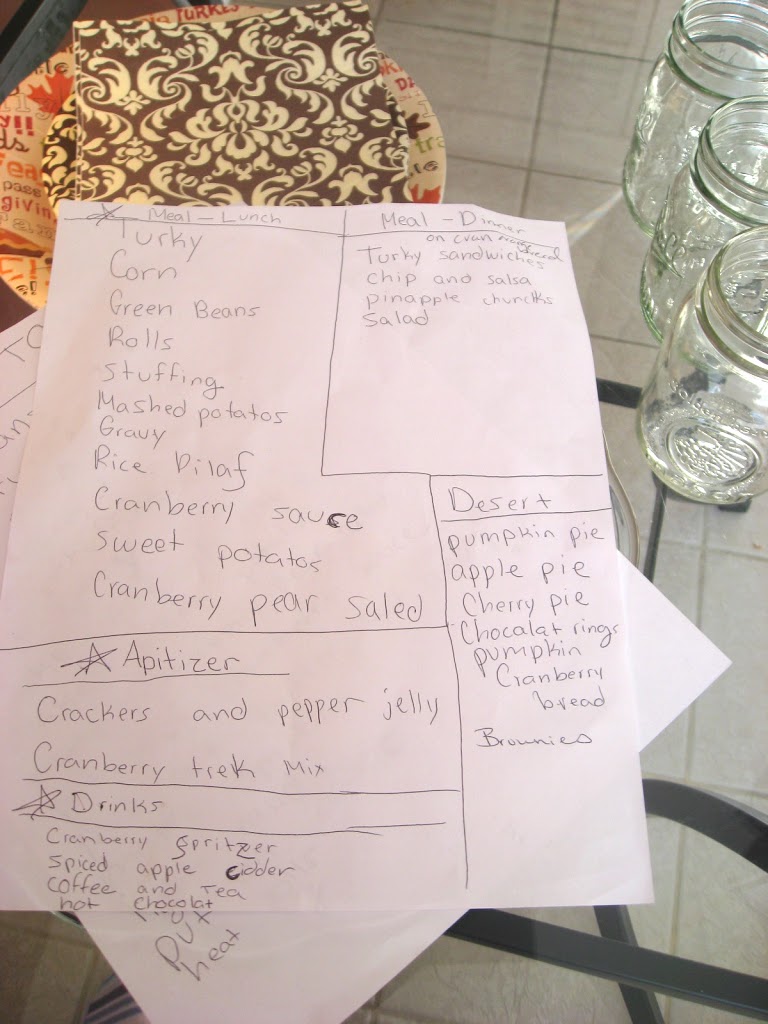 Meal - Lunch
Turky
Corn
Green Beans
Rolls
Stuffing
Mashed potatos
Gravy
Rice Pilaf
Cranberry sauce
sweet potatos
Cranberry pear saled
Meal - Dinner
on cran
bread
Turky sandwiches
chip and salsa
pinapple chuncks
Salad
Desert
pumpkin pie
apple pie
Cherry pie
Chocalat rings
pumpkin
Cranberry
bread
Brownies
Apitizer
Crackers and pepper jelly
Cranberry trek Mix
Drinks
Cranberry Spritzer
Spiced apple cidder
Coffee and Tea
hot chocolat
Put
heat
TURKEY
pass
giving